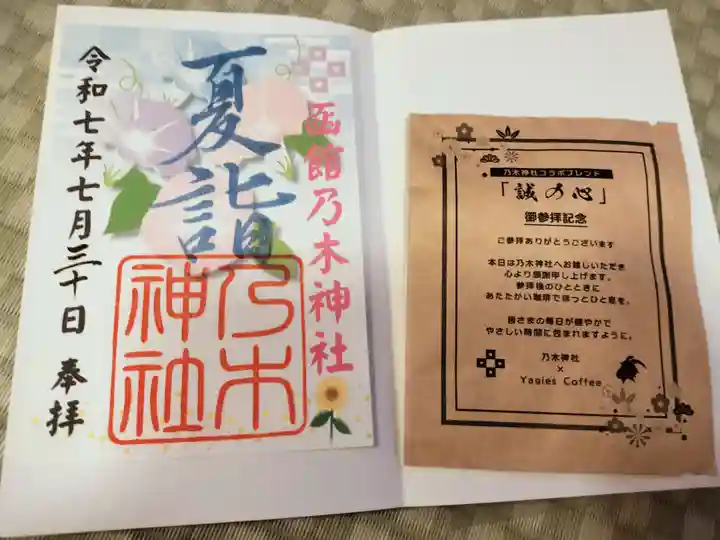 奉拝
令和七年七月三十日
夏詣
函館乃木神社
乃木
神社
乃木神社コラボブレンド
「誠の心」
御参拝記念
ご参拝ありがとうございます
本日は乃木神社へお越しいただき
心より感謝申し上げます。
参拝後のひとときに
あたたかい珈琲でほっとひと息を。
皆さまの毎日が健やかで
やさしい時間に包まれますように。
乃木神社
×
Yagies Coffee